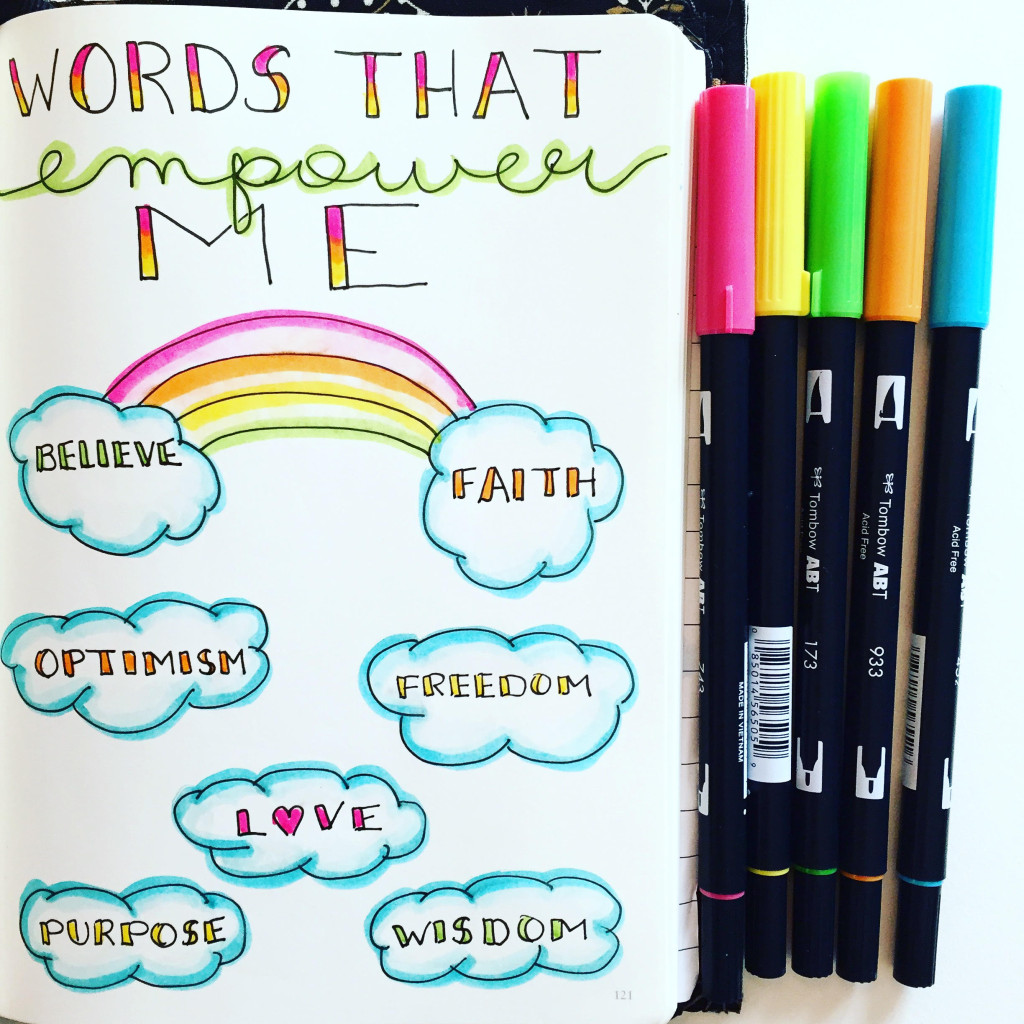 WORDS THAT
empower
ME
BELIEVE
FAITH
OPTIMISM
FREEDOM
L♥VE
PURPOSE
WISDOM
121
MADE IN VIETNAM
0 85014 56505 9
Tombow ABT
173
Tombow ABT
Acid Free
933
Acid Free